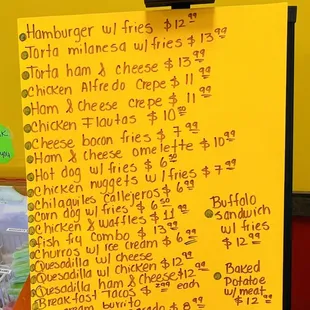 Hamburger w/ fries $12.99
Torta milanesa w/ fries $13.99
Torta ham & cheese $13.99
Chicken Alfredo Crepe $11.99
Ham & Cheese crepe $11.99
Chicken Flautas $10.50
Cheese bacon fries $7.99
Ham & cheese omelette $10.99
Hot dog w/ fries $6.50
Chicken nuggets w/ fries $7.99
Chilaquiles Callejeros $6.99
Corn dog w/ fries $6.50
Chicken & waffles $11.99
fish fry Combo $13.99
Churros w/ ice cream $6.99
Quesadilla w/ cheese
Quesadilla w/ chicken $12.99
Quesadilla, ham & cheese $12.99
Breakfast Tacos $2.99 each
burrito
$8.99
Buffalo
sandwich
w/ fries
$12.99
Baked
Potatoe
w/ meat
$12.99